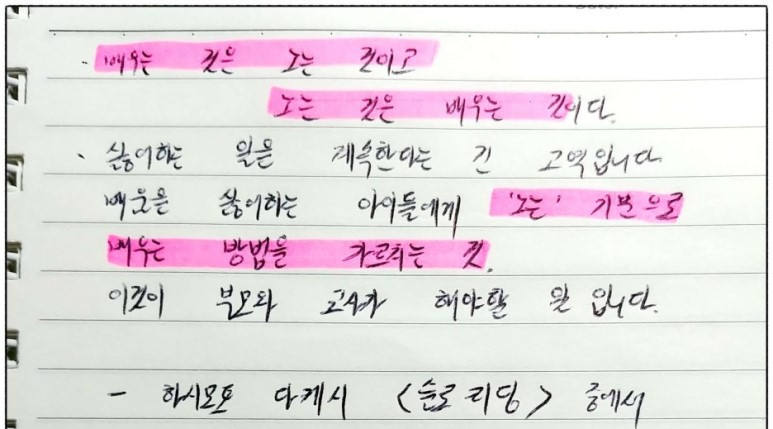 · 배우는 것은 노는 것이고
노는 것은 배우는 것이다.
· 싫어하는 일을 계속한다는 건 고역입니다.
배움을 싫어하는 아이들에게 '노는' 기분으로
배우는 방법을 가르치는 것.
이것이 부모와 교사가 해야할 일 입니다.
- 하시모토 다케시 <슬로 리딩> 중에서